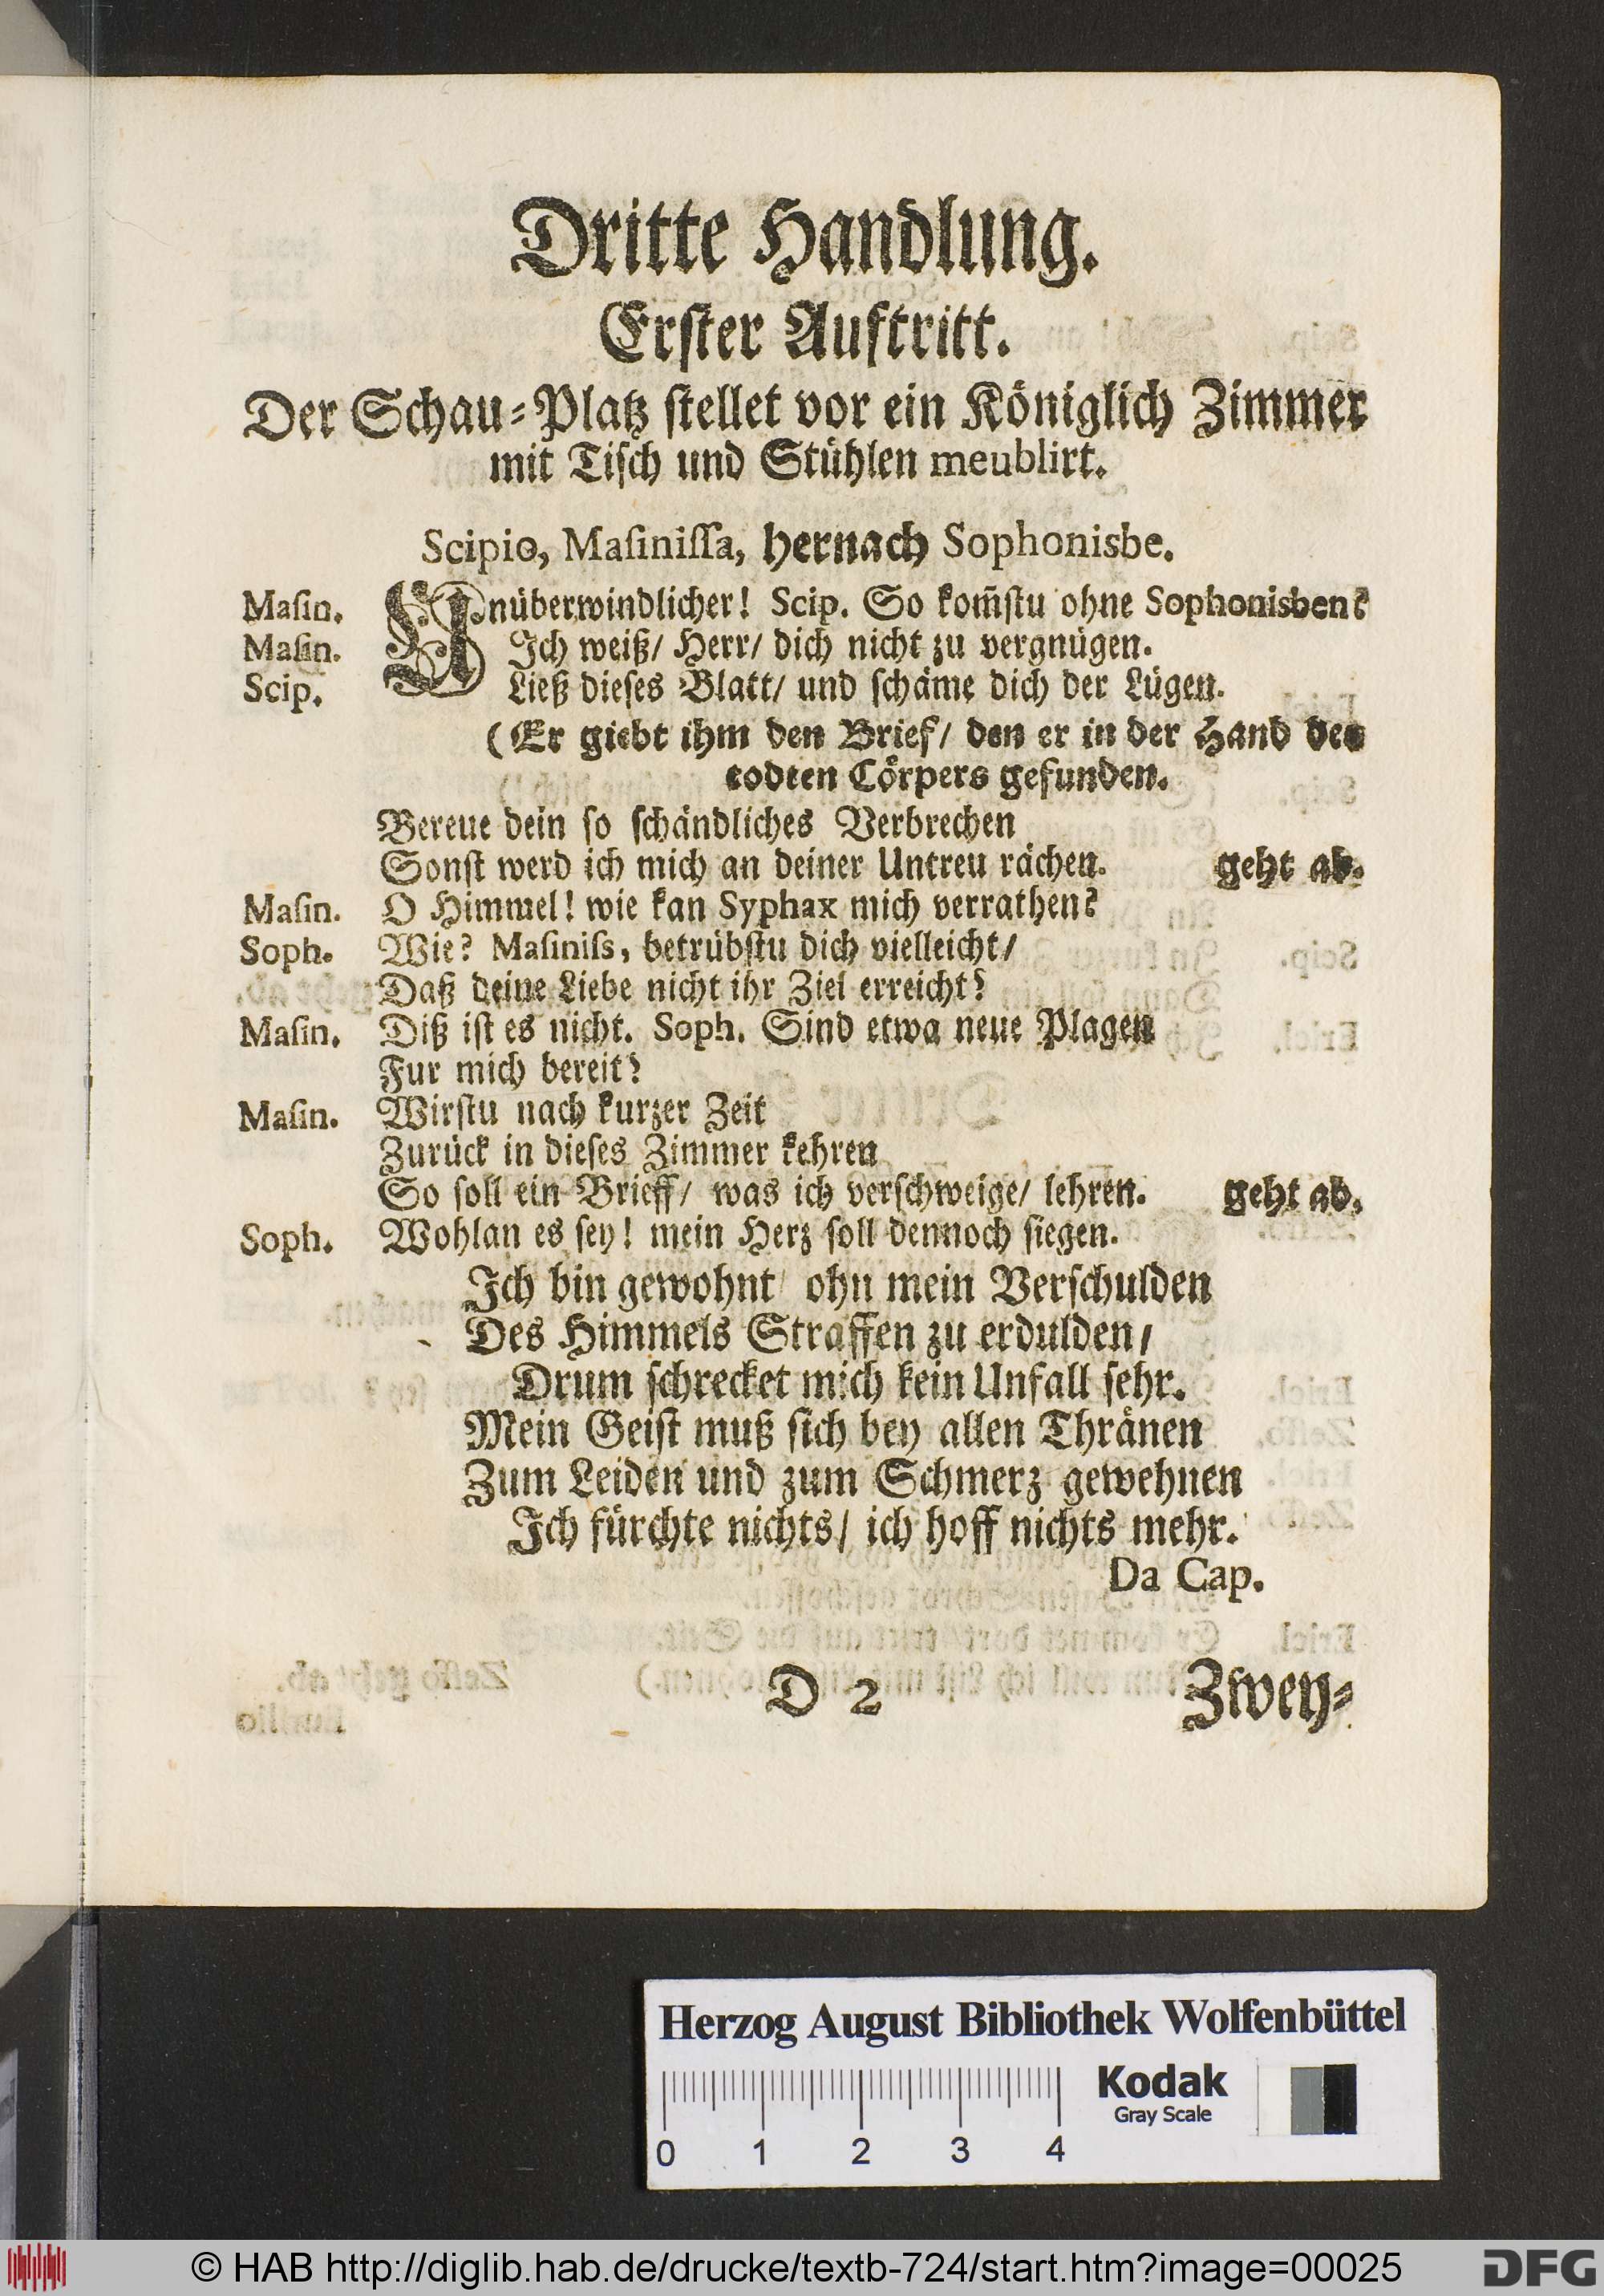 Dritte Handlung.
Erster Auftritt.
Der Schau-Platz ſtellet vor ein Königlich Zimmer
mit Tiſch und Stühlen meublirt.
Scipio, Maſiniſſa, hernach Sophonisbe.
Maſin. Unüberwindlicher! Scip. So kom̃ſtu ohne Sophonisben?
Maſin. Ich weiß/ Herr/ dich nicht zu vergnügen.
Scip. Ließ dieſes Blatt/ und ſchäme dich der Lügen.
(Er giebt ihm den Brief/ den er in der Hand des
todten Cörpers gefunden.
Bereue dein ſo ſchändliches Verbrechen
Sonſt werd ich mich an deiner Untreu rächen. geht ab.
Maſin. O Himmel! wie kan Syphax mich verrathen?
Soph. Wie? Maſiniſs, betrübſtu dich vielleicht/
Daß deine Liebe nicht ihr Ziel erreicht?
Maſin. Diß iſt es nicht. Soph. Sind etwa neue Plagen
Fur mich bereit?
Maſin. Wirſtu nach kurzer Zeit
Zurück in dieſes Zimmer kehren
So ſoll ein Brieff/ was ich verſchweige/ lehren. geht ab.
Soph. Wohlan es ſey! mein Herz ſoll dennoch ſiegen.
Ich bin gewohnt/ ohn mein Verſchulden
Des Himmels Straffen zu erdulden/
Drum ſchrecket mich kein Unfall ſehr.
Mein Geiſt muß ſich bey allen Thränen
Zum Leiden und zum Schmerz gewehnen
Ich fürchte nichts/ ich hoff nichts mehr.
Da Cap.
D 2 Zwey-
Herzog August Bibliothek Wolfenbüttel
Kodak
Gray Scale
0 1 2 3 4
© HAB http://diglib.hab.de/drucke/textb-724/start.htm?image=00025 DFG